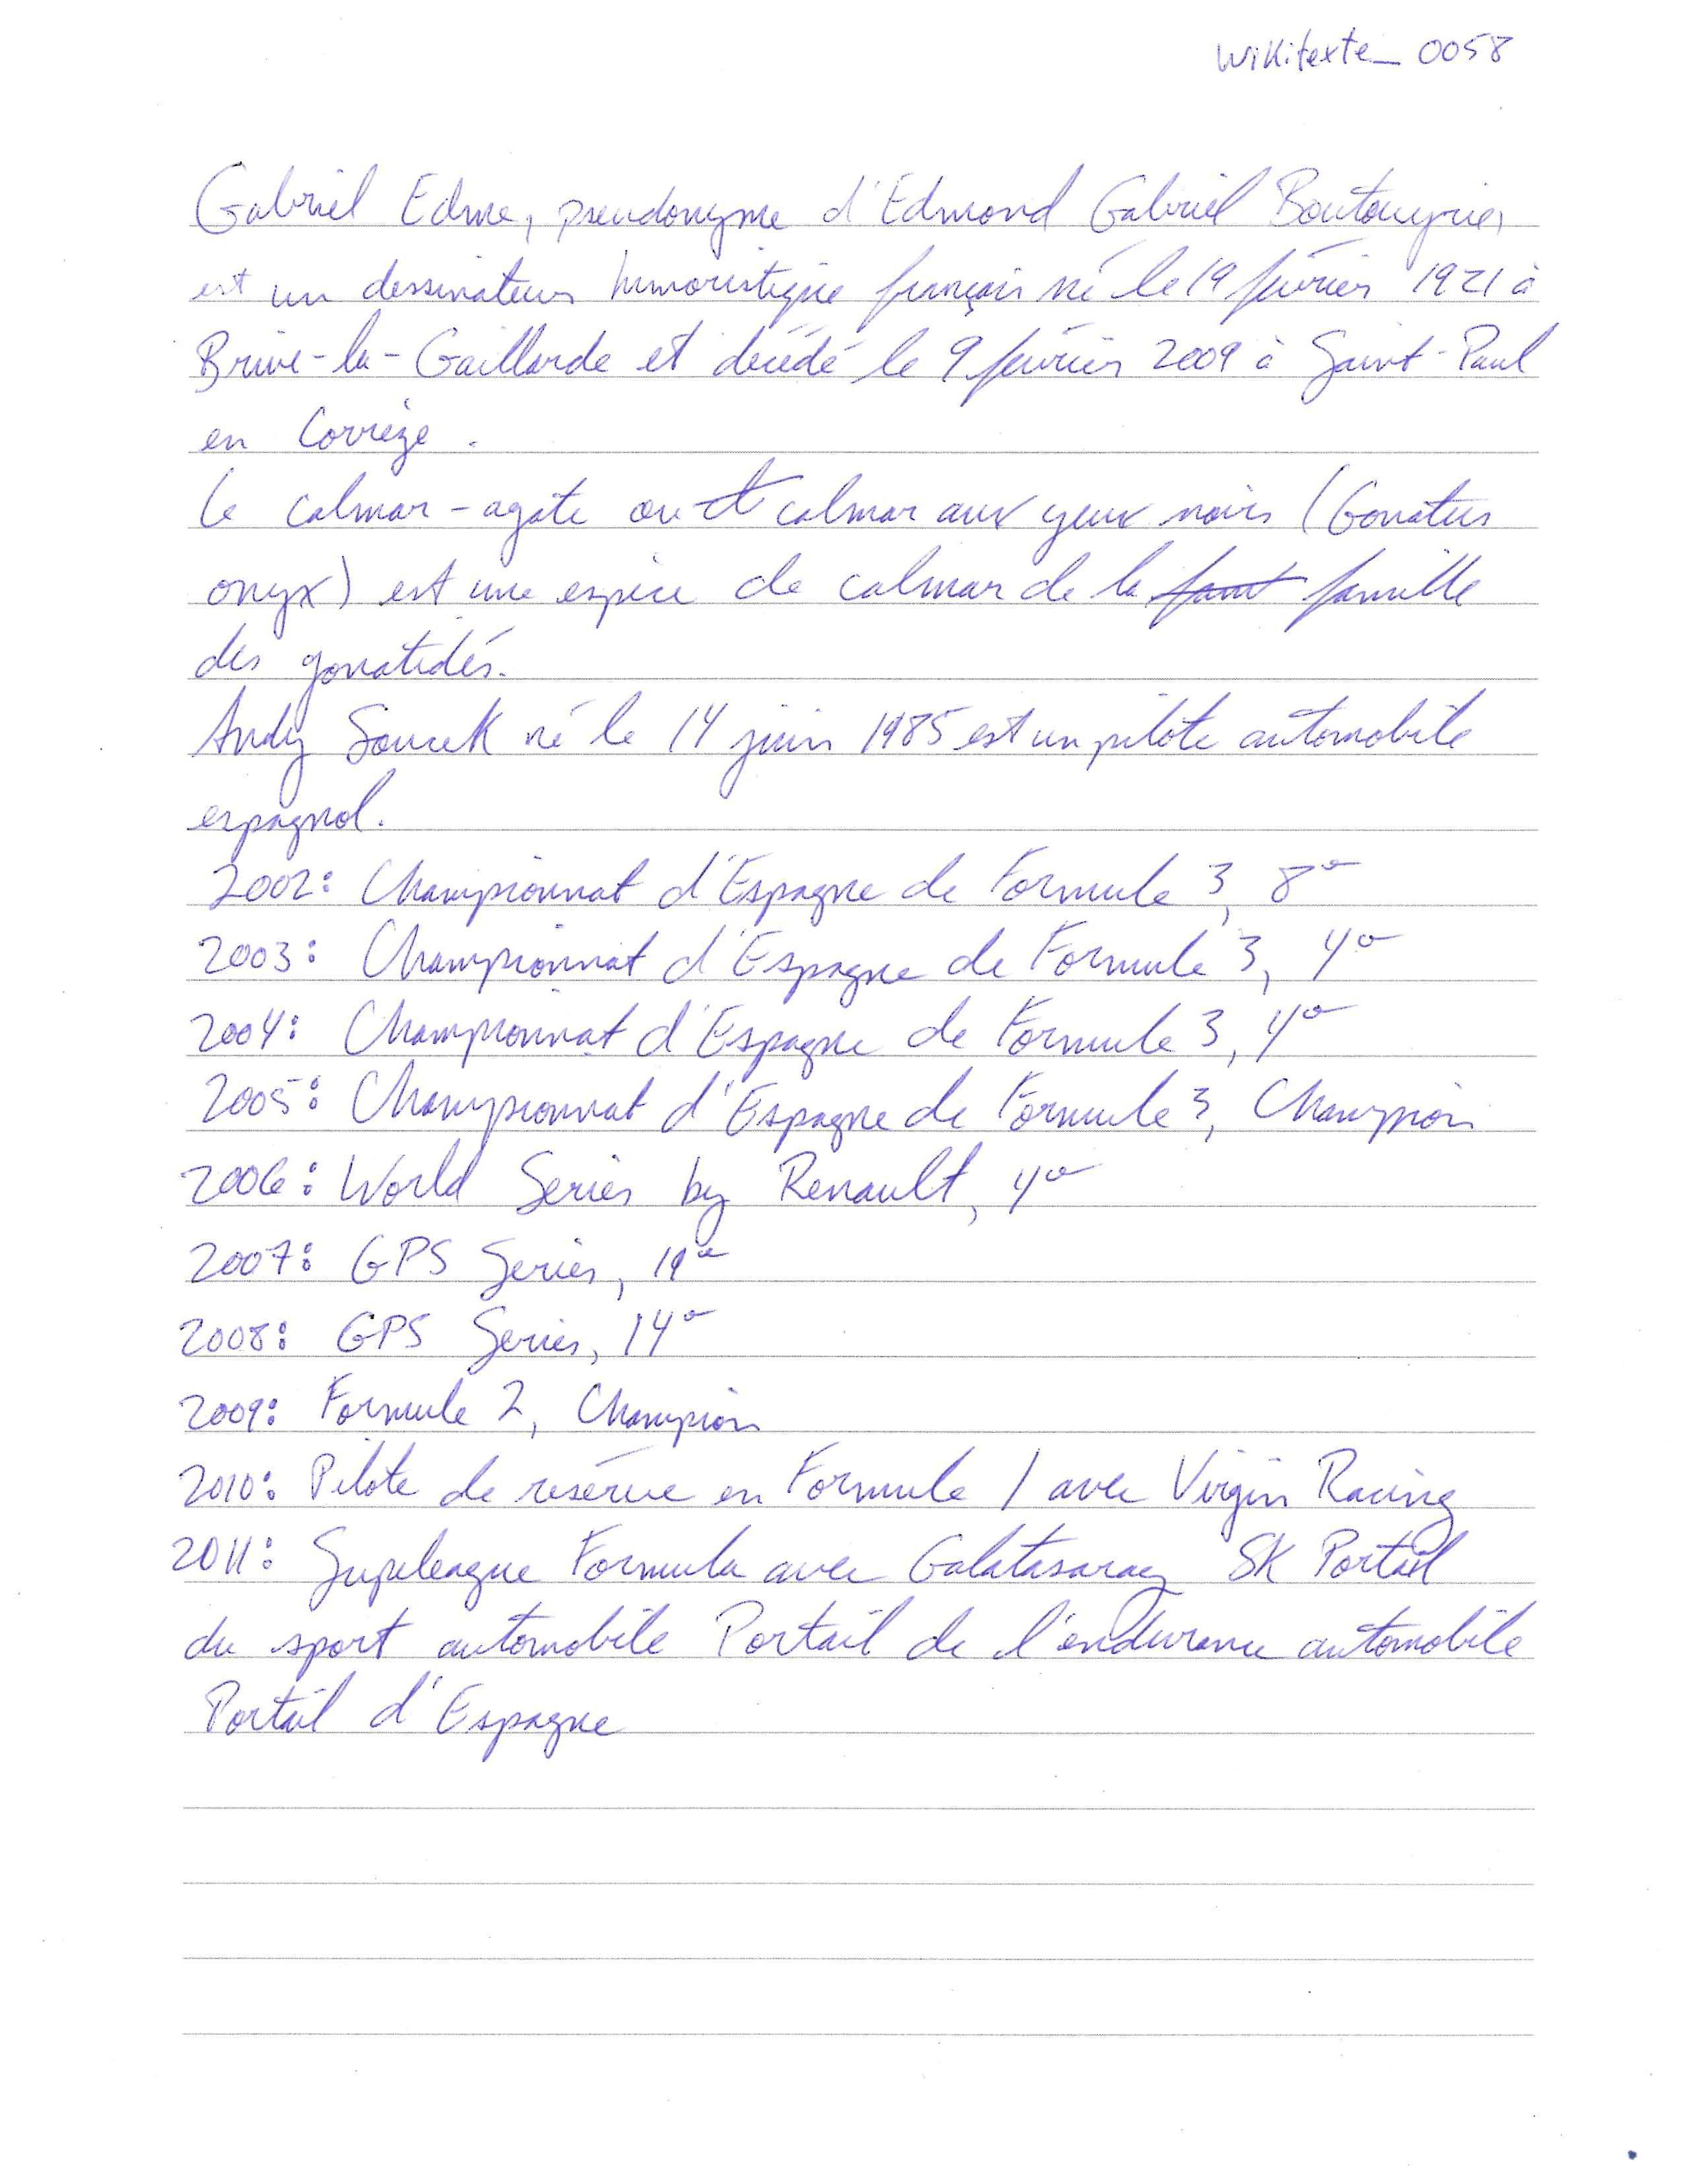 Wikitexte_0058
Gabriel Edme, pseudonyme d'Edmond Gabriel
est un dessinateur humoristique français né le 19 février 1921 à
Brive-la-Gaillarde et décédé le 9 février 2009 à Saint-Paul
en Corrèze.
Le calmar-agate ou calmar aux yeux noirs (Gonatus
onyx) est une espèce de calmar de la famille
des gonatidés.
Andy Soucek né le 14 juin 1985 est un pilote automobile
espagnol.
2002: Championnat d'Espagne de Formule 3, 8e
2003: Championnat d'Espagne de Formule 3, 4e
2004: Championnat d'Espagne de Formule 3, 4e
2005: Championnat d'Espagne de Formule 3, Champion
2006: World Series by Renault, 4e
2007: GPS Series, 19e
2008: GPS Series, 14e
2009: Formule 2, Champion
2010: Pilote de réserve en Formule 1 avec Virgin Racing
2011: Supeleague Formula avec Galatasaray SK Portail
du sport automobile Portail de l'endurance automobile
Portail d'Espagne